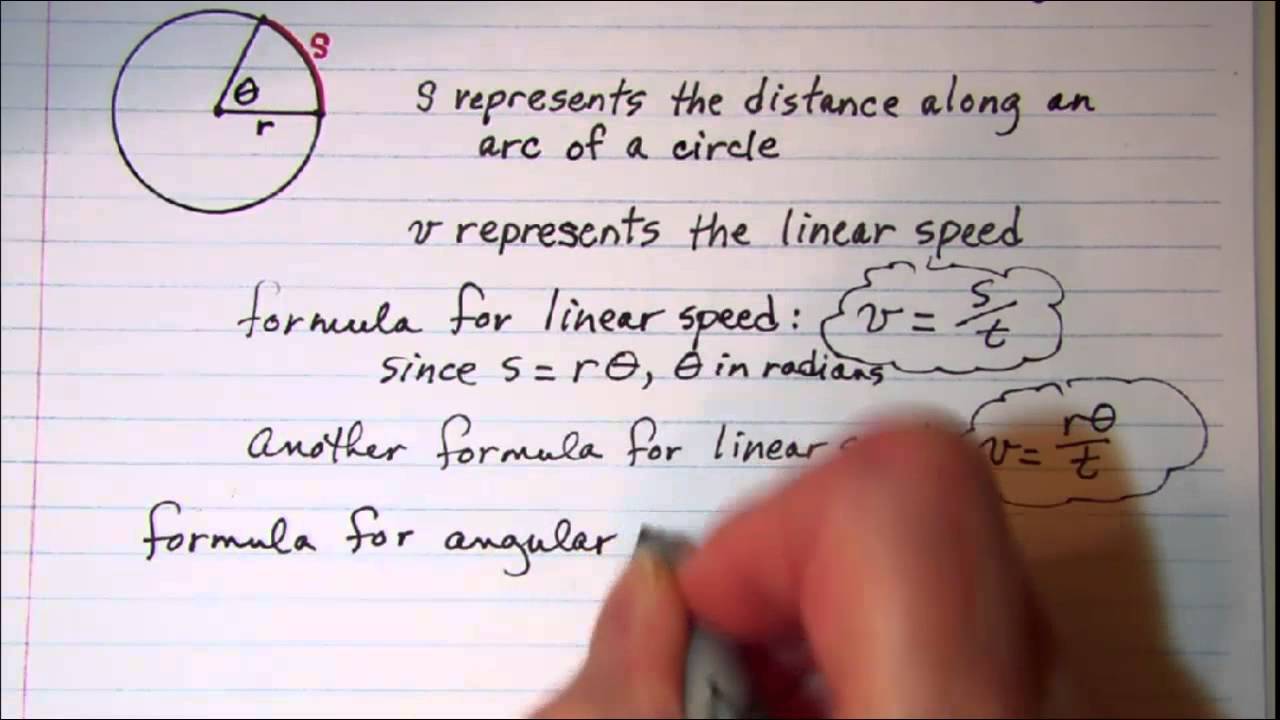 S
θ
r
s represents the distance along an
arc of a circle
v represents the linear speed
formula for linear speed: v = s/t
since s = rθ, θ in radians
another formula for linear v = rθ/t
formula for angular